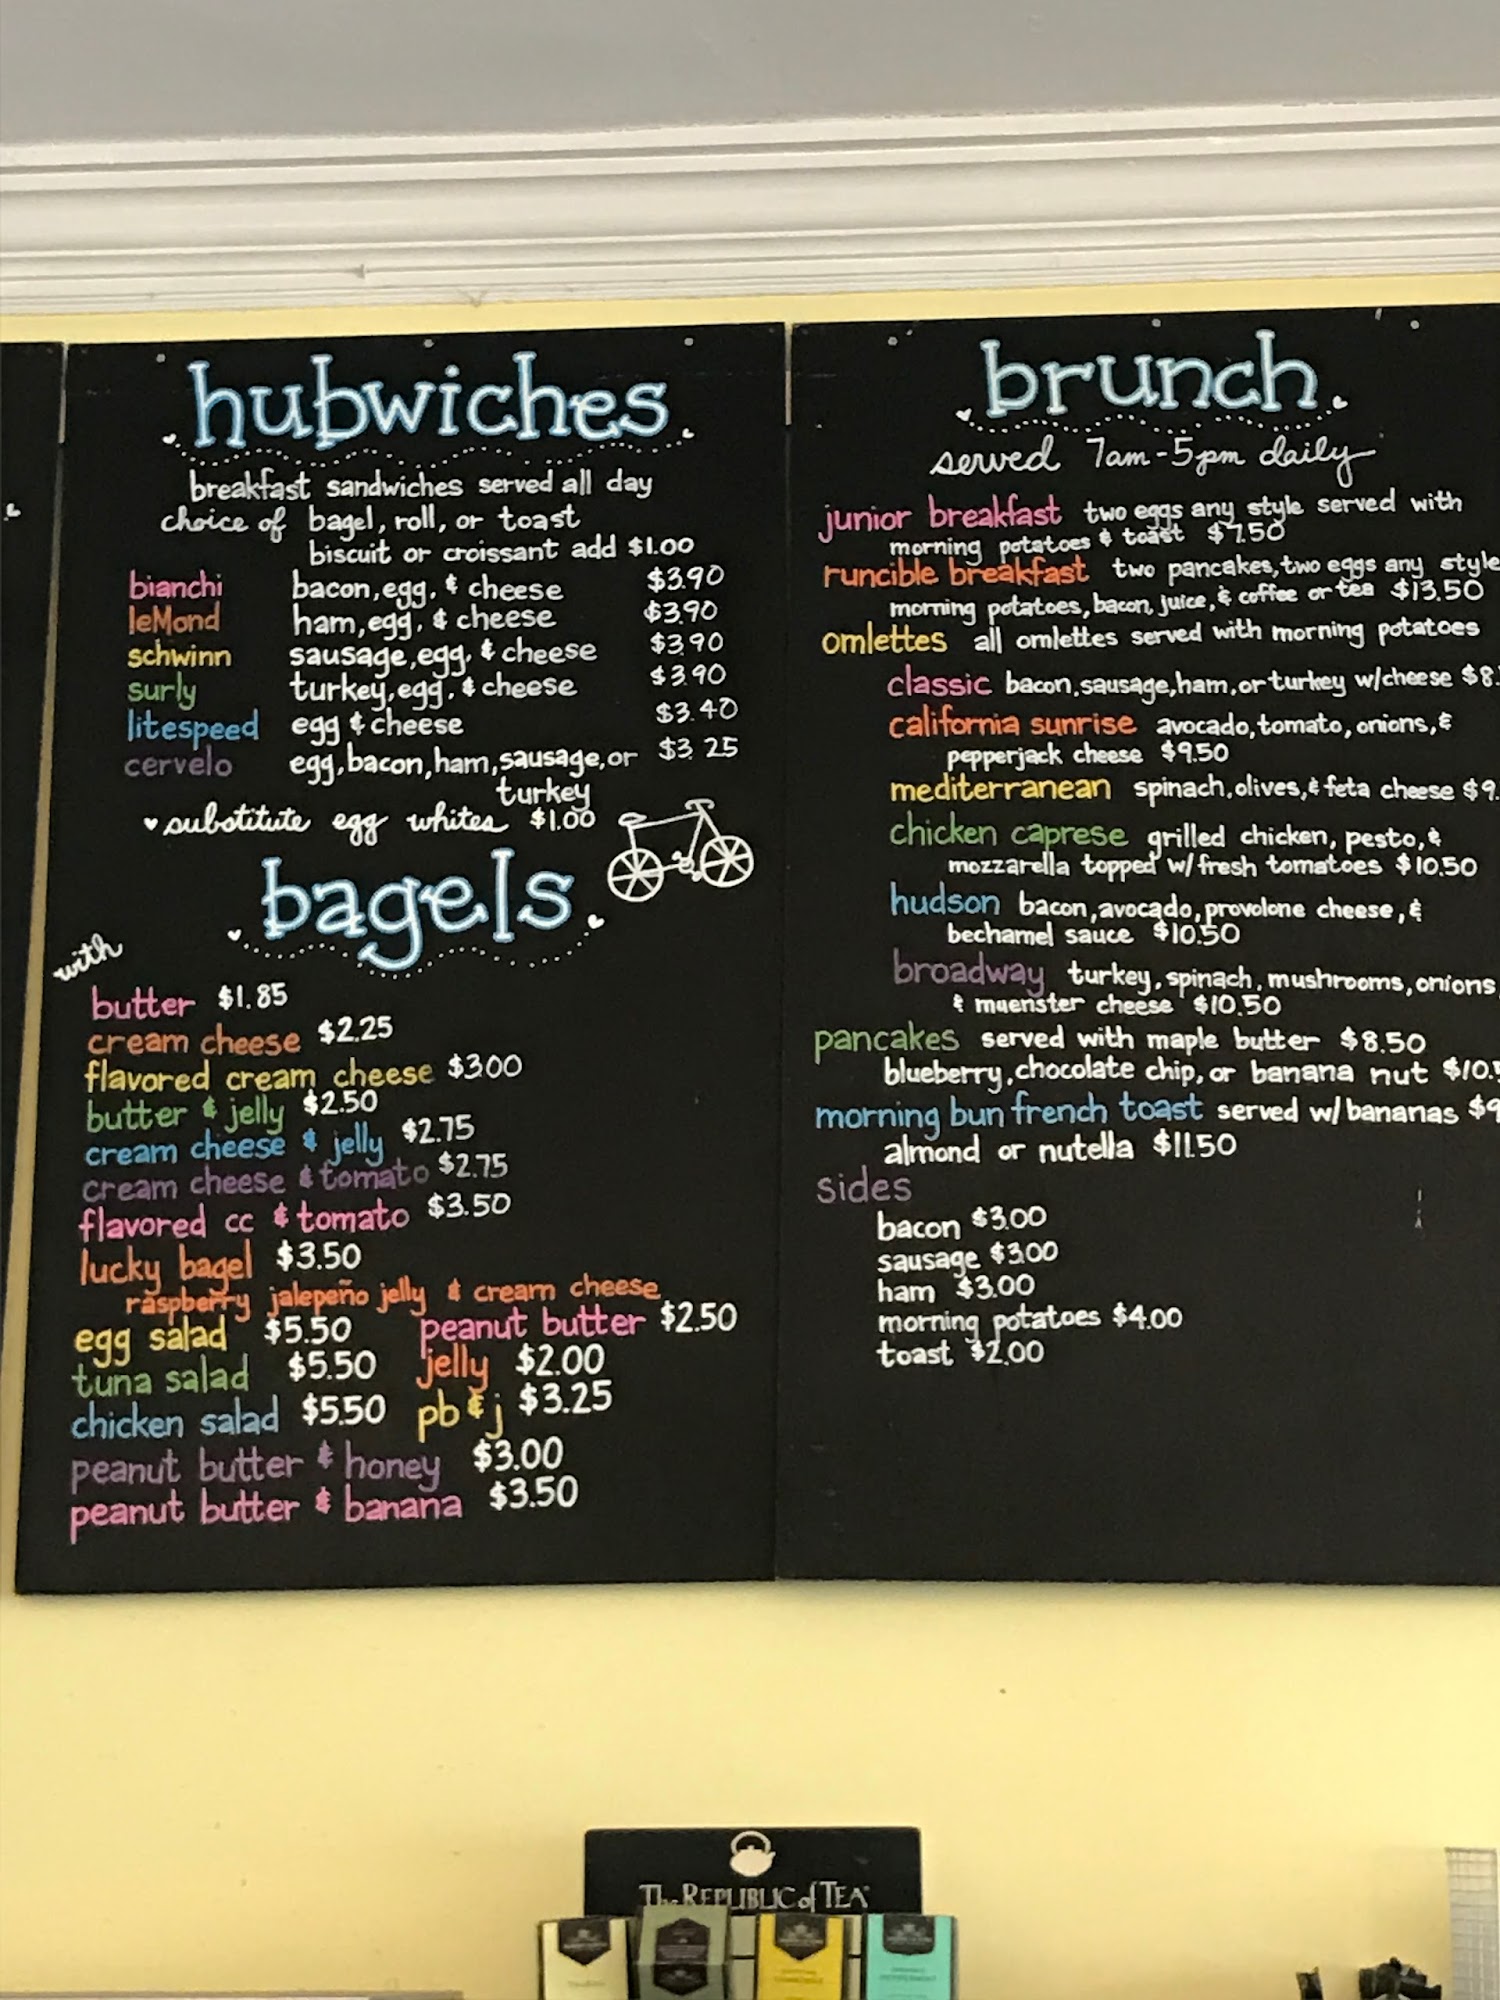 hubwiches
breakfast sandwiches served all day
choice of bagel, roll, or toast
biscuit or croissant add $1.00
bianchi bacon, egg, & cheese $3.90
leMond ham, egg, & cheese $3.90
schwinn sausage, egg, & cheese $3.90
surly turkey, egg, & cheese $3.90
litespeed egg & cheese $3.40
cervelo egg, bacon, ham, sausage, or $3.25
turkey
substitute egg whites $1.00
bagels
with
butter $1.85
cream cheese $2.25
flavored cream cheese $3.00
butter & jelly $2.50
cream cheese & jelly $2.75
cream cheese & tomato $2.75
flavored cc & tomato $3.50
lucky bagel $3.50
raspberry jalepeño jelly & cream cheese
egg salad $5.50
tuna salad $5.50
chicken salad $5.50
peanut butter & honey $3.00
peanut butter & banana $3.50
peanut butter $2.50
jelly $2.00
pb & j $3.25
brunch
served 7am-5pm daily
junior breakfast two eggs any style served with
morning potatoes & toast $7.50
runcible breakfast two pancakes, two eggs any style
morning potatoes, bacon, juice, & coffee or tea $13.50
omlettes all omlettes served with morning potatoes
classic bacon, sausage, ham, or turkey w/cheese $8.
california sunrise avocado, tomato, onions, &
pepperjack cheese $9.50
mediterranean spinach, olives, & feta cheese $9.
chicken caprese grilled chicken, pesto, &
mozzarella topped w/fresh tomatoes $10.50
hudson bacon, avocado, provolone cheese, &
bechamel sauce $10.50
broadway turkey, spinach, mushrooms, onions
& muenster cheese $10.50
pancakes served with maple butter $8.50
blueberry, chocolate chip, or banana nut $10.
morning bun french toast served w/bananas $9
almond or nutella $11.50
sides
bacon $3.00
sausage $3.00
ham $3.00
morning potatoes $4.00
toast $2.00
The REPUBLIC of TEA